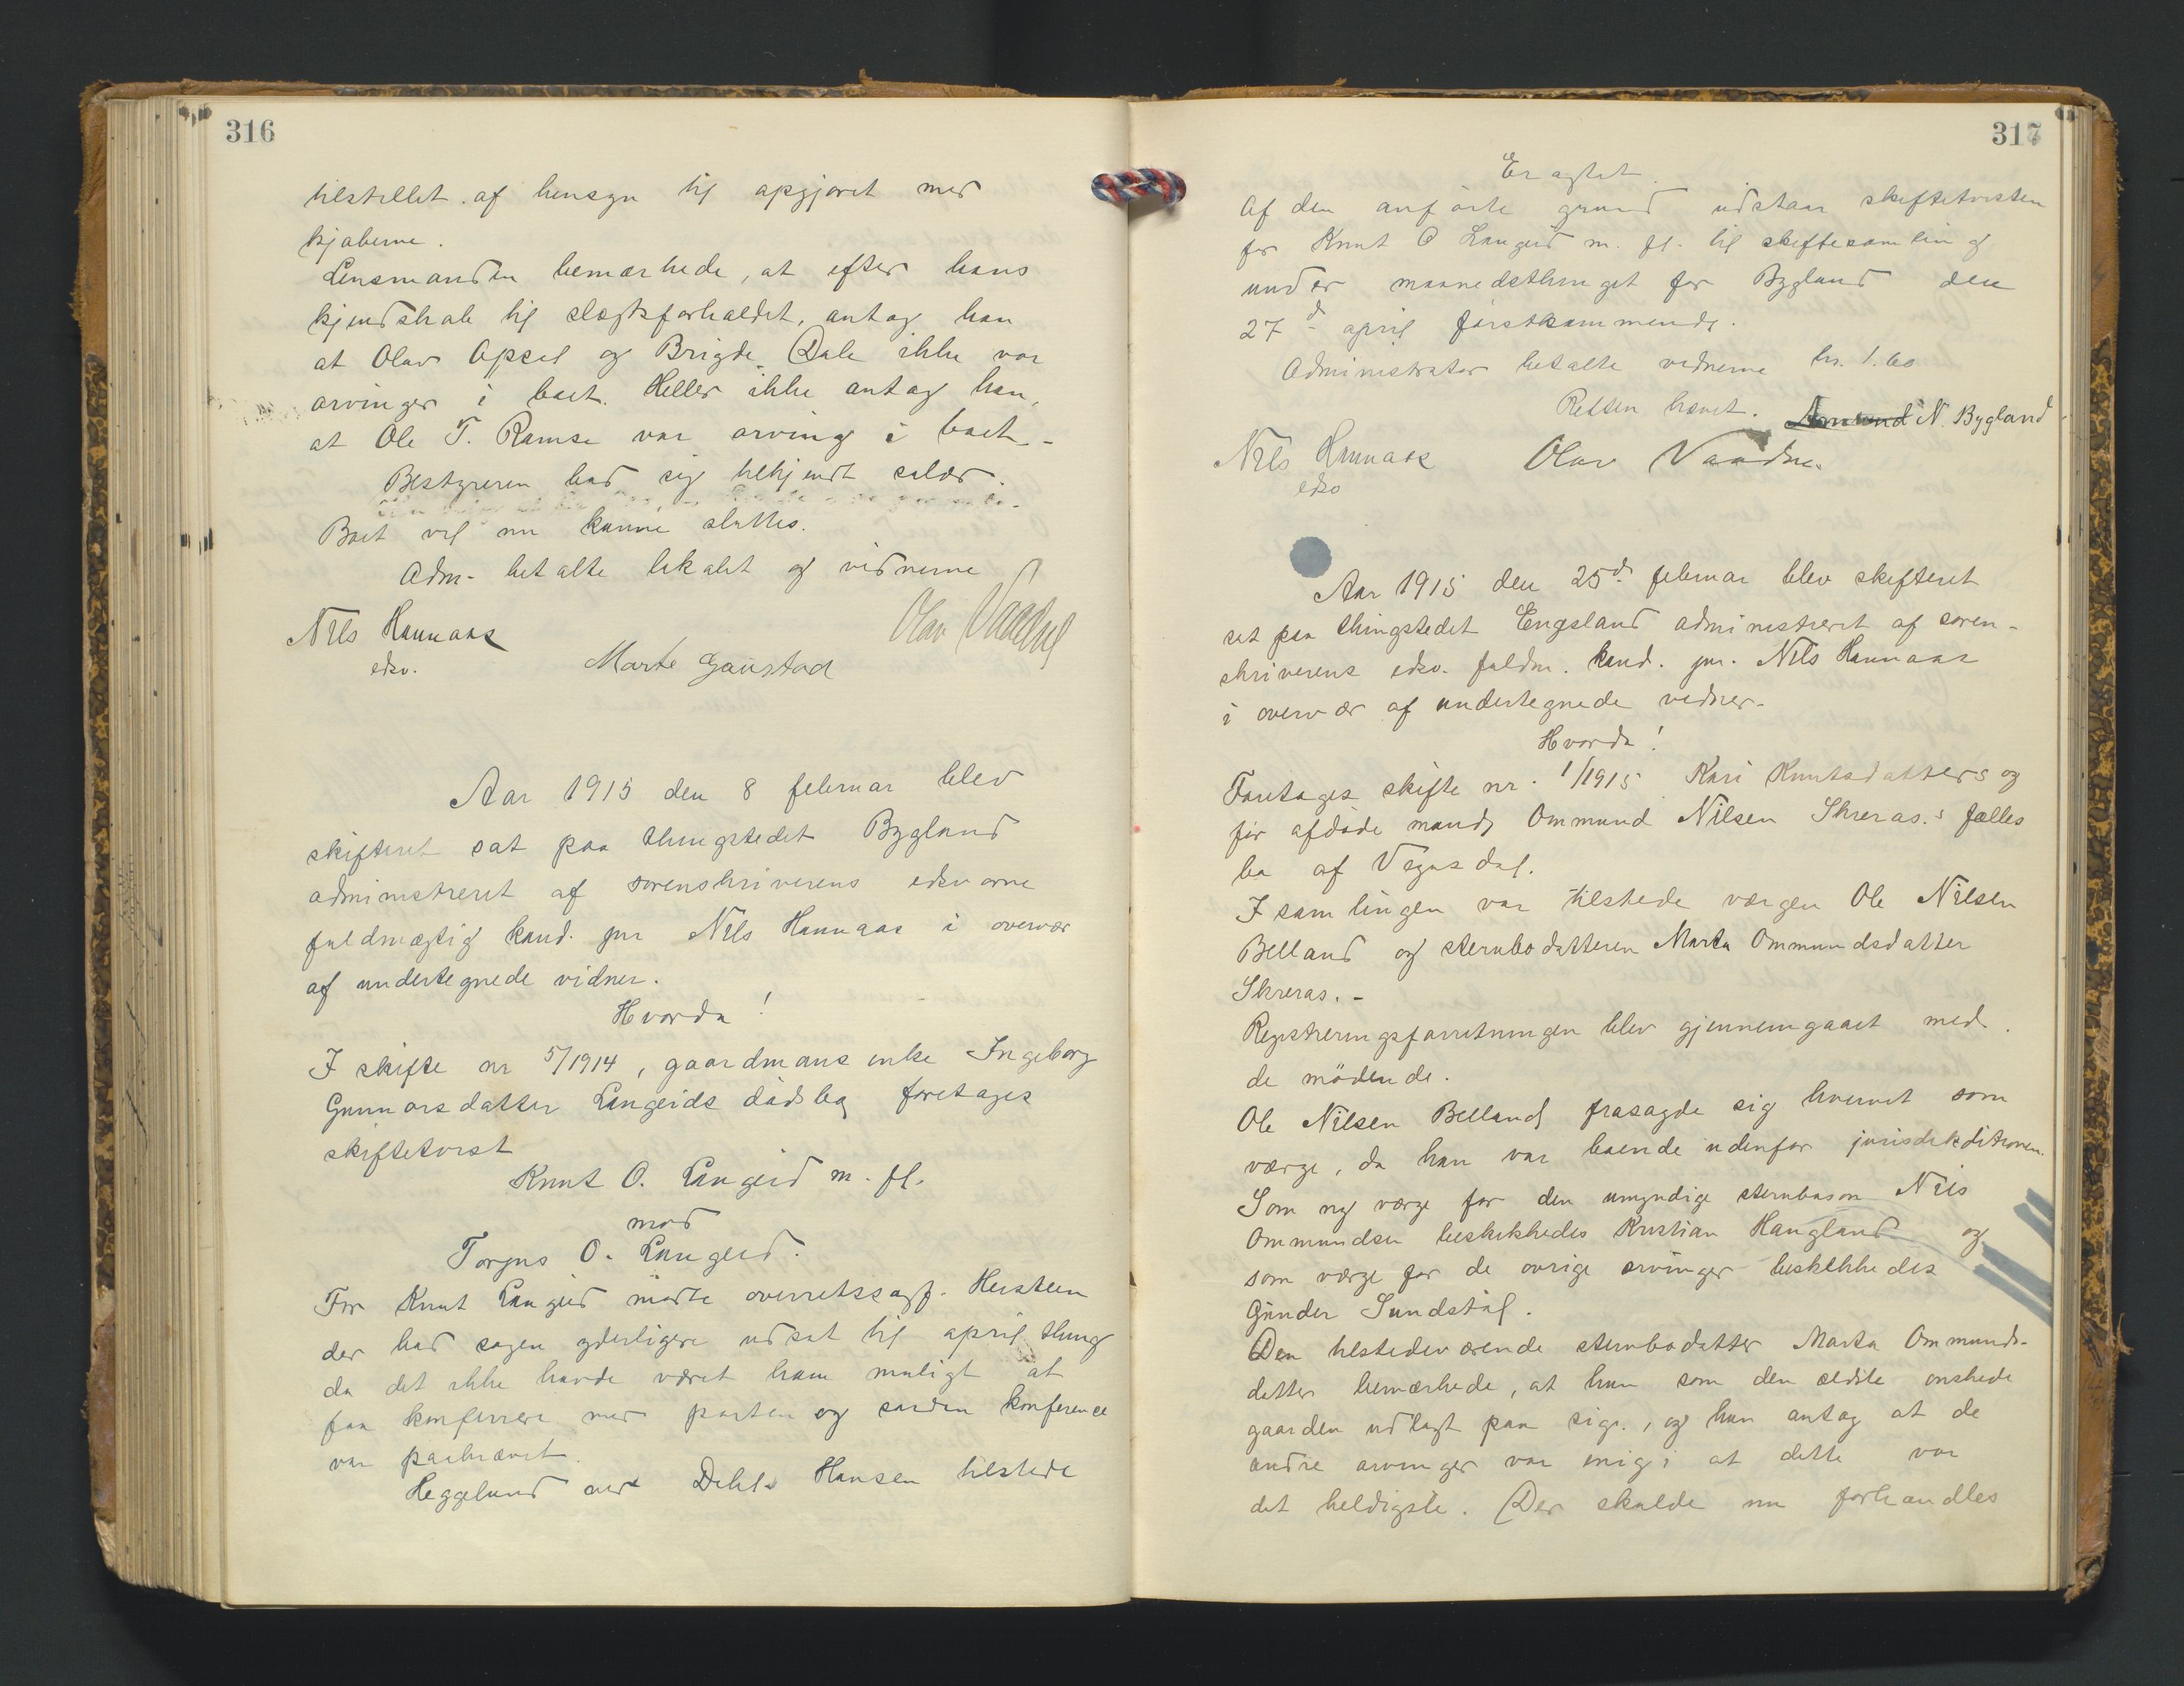 316
tilstillet af hensyn til opgjøret med
kjøberne.
Lensmanden bemærkede, at efter hans
kjendskab til slegtsforholdet, antog han
at Olav Opsal og Brigde Dale ikke var
arvinger i boet. Heller ikke antog han,
at Ole T. Ramse var arving i boet -
Bestyreren bad sig tilkjendt salær.
Boet vil nu kunne sluttes.
Adm. betalte lokalet og vidnerne
Nils Hannaas Olav Vaadne
edsv. Marte Gaustad
Aar 1915 den 8 februar blev
skifteret sat paa thingstedet Bygland
administreret af sorenskriverens edsvorne
fuldmægtig kand. jur Nils Hannaas i overvær
af undertegnede vidner.
Hvorda!
I skifte nr 5/1914, gaardmans enke Ingeborg
Gunnarsdatter Langeids dødsbo, foretages
skiftetvist
Knut O. Langeid m. fl.
mod
Torgus O. Langeid.
For Knut Langeid mødte overretssagf. Heisteen
der bad sagen yderligere udsat til april thing
da det ikke havde været ham muligt at
faa konferere med parten og saadan konference
var paakrævet.
Heggelund ved Dehls Hansen tilstede
317
Eragtet.
Af den anførte grund udstaar skiftetvisten
for Knut O Langeid m. fl. til skiftesamling
under maanedsthinget for Bygland den
27d april førstkommende.
Administrator betalte vidnerne kr. 1.60
Retten hævet. Aamund N. Bygland
Nils Hannaas Olav Vaadne.
edsv
Aar 1915 den 25d. februar blev skifteret
sat paa thingstedet Engsland administreret af soren-
skriverens edsv. fuldm. kand. jur. Nils Hannaas
i overvær af undertegnede vidner.
Hvorda!
Foretages skifte nr. 1/1915 Kari Knutsdatters og
før afdøde mands Ommund Nilsen Skreras.s fælles
bo af Vegusdal.
I samlingen var tilstede værgen Ole Nilsen
Belland og sterbodatteren Marta Ommundsdatter
Skreras. -
Registreringsforretningen blev gjennemgaaet med
de mødende.
Ole Nilsen Belland frasagde sig hvervet som
værge, da han var boende udenfor jurisdikditionen.
Som ny værge for den umyndige sterbosøn Nils
Ommundsen beskikkedes Kristian Haugland og
som værge for de øvrige arvinger beskikkedes
Gunder Sundstøl.
Den tilstedeværende sterbodatter Marta Ommunds-
datter bemærkede, at hun som den ældste ønskede
gaarden udlagt paa sig., og hun antog at de
andre arvinger var enig i at dette var
det heldigste. Der skulde nu forhandles